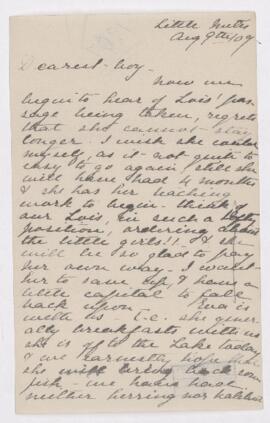 Little Metis
Aug 9th/09
Dearest boy -
Now we
begin to hear of Lois' pas-
sage being taken, regrets
that she cannot stay
longer. I wish she could
myself, as it is not quite so
easy to go again, still she
will have had 4 months
& she has her teaching
work to begin - think of
our Lois, in such a
position, ordering about
the little girls!! & she
will be so glad to pay
her own way. I want
her to save up, & have a
little capital to fall
back upon. Evа is
with us - i.e. she gener-
ally breakfasts with us
she is off to the Lake today
& we earnestly hope that
she will bring back some
fish - we have had
neither herring nor halibut